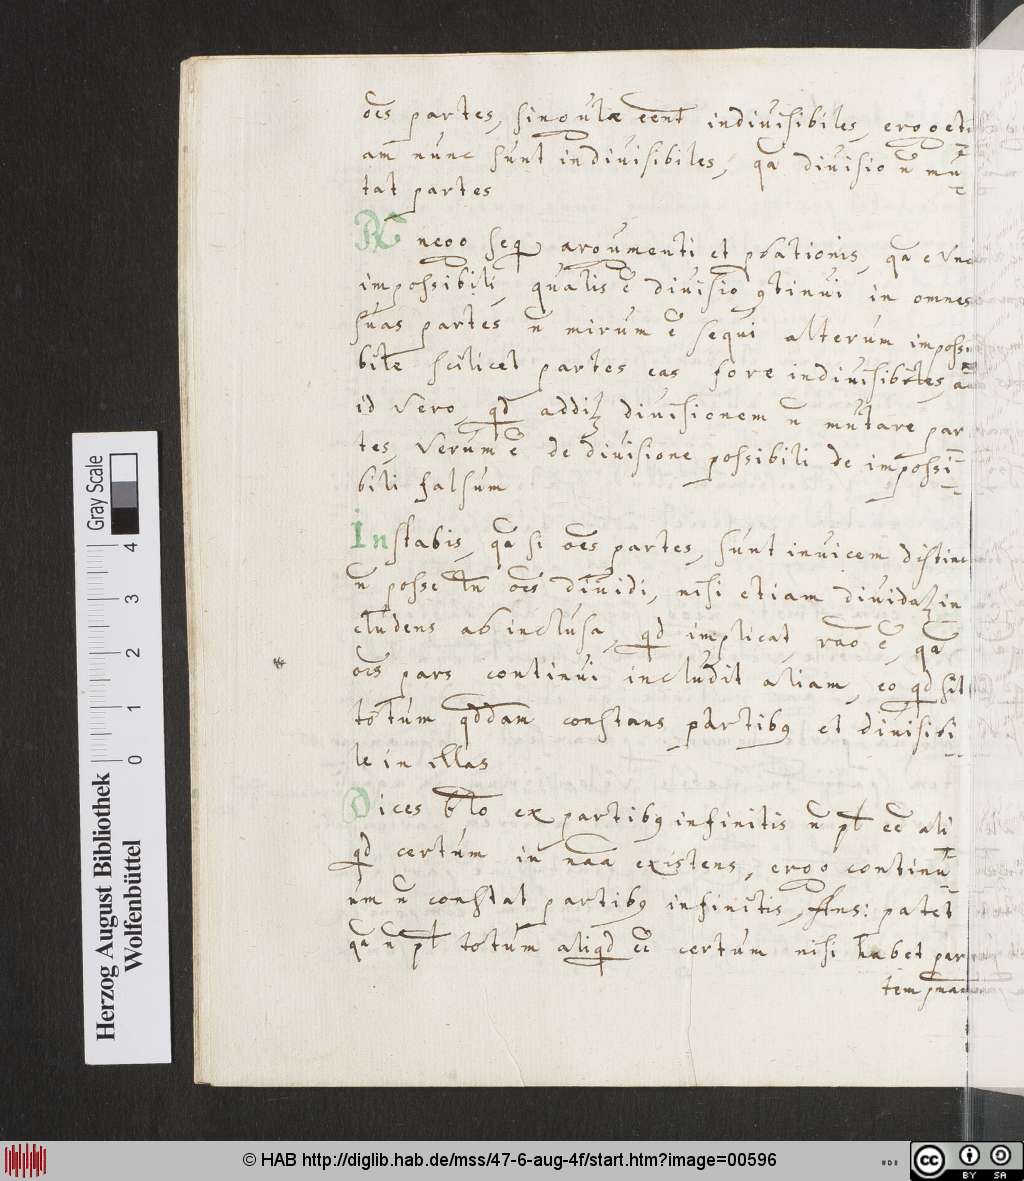 oēs partes, singulæ eēnt indiuisibiles, ergo eti
am nunc sunt indiuisibiles, qa diuisio n̄ mu
tat partes
nego seq argumenti et probationis, qa
impossibili, qualis ē diuisio 9tinui in omnes
suas partes n̄ mirum ē sequi alterum impossi
bile scilicet partes eas fore indiuisibiles,
id vero, qd addi diuisionem n̄ mutare par
tes, verum ē de diuisione possibili de impossi
bili falsum
Instabis, qa si oēs partes, sunt inuicem distinc
n̄ posse tn̄ oēs diuidi, nisi etiam in
cludens ab inclusa, qd implicat, rao ē, qa
oēs pars continui includit aliam, eo qd sit
totum qddam constans partib9 et diuisibi
le in illas
Dices ex partib9 infinitis n̄ pt eē ali
qd certum in naā existens, ergo continu
um n̄ constat partib9 infinitis, Ans: patet
qa n̄ pt totum aliqd eē certum nisi habet par
tem
Herzog August Bibliothek
Wolfenbüttel
Gray Scale
0 1 2 3 4
© HAB http://diglib.hab.de/mss/47-6-aug-4f/start.htm?image=00596
cc BY SA